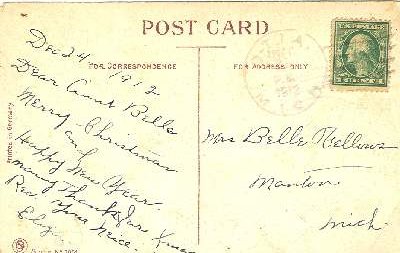 POST CARD
FOR CORRESPONDENCE
FOR ADDRESS ONLY
Dec 24 1912
Dear Aunt Belle
Merry Christmas
and
Happy New Year
many Thanks for
Rec. your neice
Mrs Belle Vellows
Manton
Mich
Printed in Germany